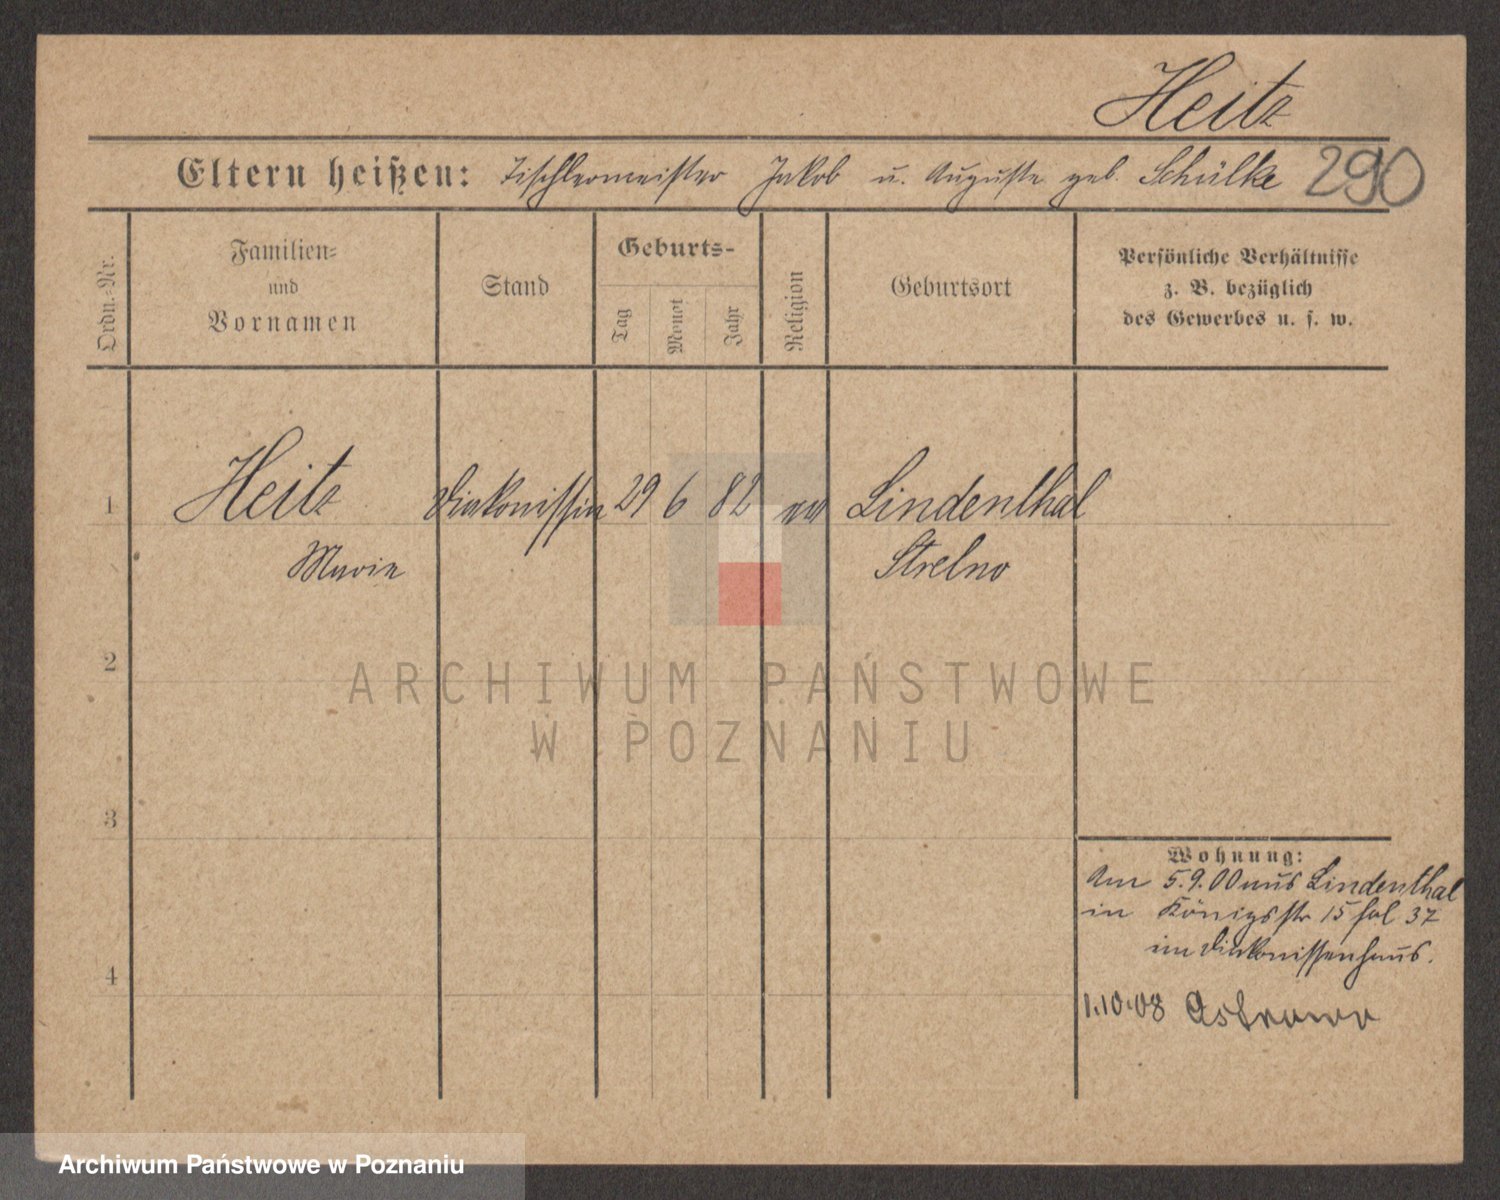 Heitz
Eltern heißen: Tischlermeister Jakob u. Auguste geb. Schülke 290
Ordn.-Nr.
Familien-
und
Vornamen
Stand
Geburts-
Tag
Monat
Jahr
Religion
Geburtsort
Persönliche Verhältnisse
z. B. bezüglich
des Gewerbes u. s. w.
1 Heitz Diakonissin 29 6 82 ev Lindenthal
Marie Strelno
2
ARCHIWUM PAŃSTWOWE
W POZNANIU
3
Wohnung:
Am 5.9.00 aus Lindenthal
in Königsstr 15 fol 37
im Diakonissenhaus.
4
1.10.08 Ostrowo
Archiwum Państwowe w Poznaniu